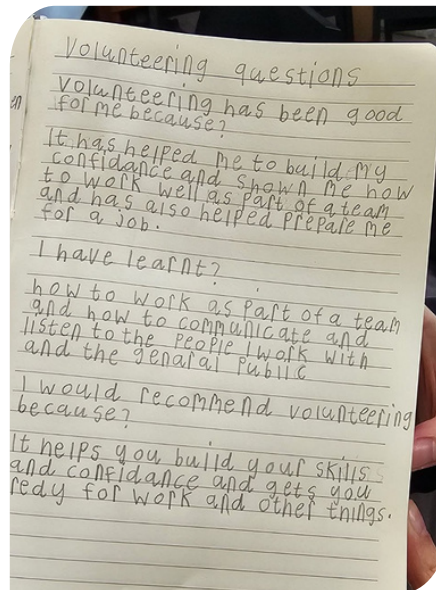 Volunteering questions
Volunteering has been good
for me because?
It has helped me to build my
confidance and shown me how
to work well as part of a team
and has also helped prepare me
for a job.
I have learnt?
how to work as part of a team
and how to communicate and
listen to the people I work with
and the genaral public
I would recommend volunteering
because?
It helps you build your skills
and confidance and gets you
redy for work and other things.
en